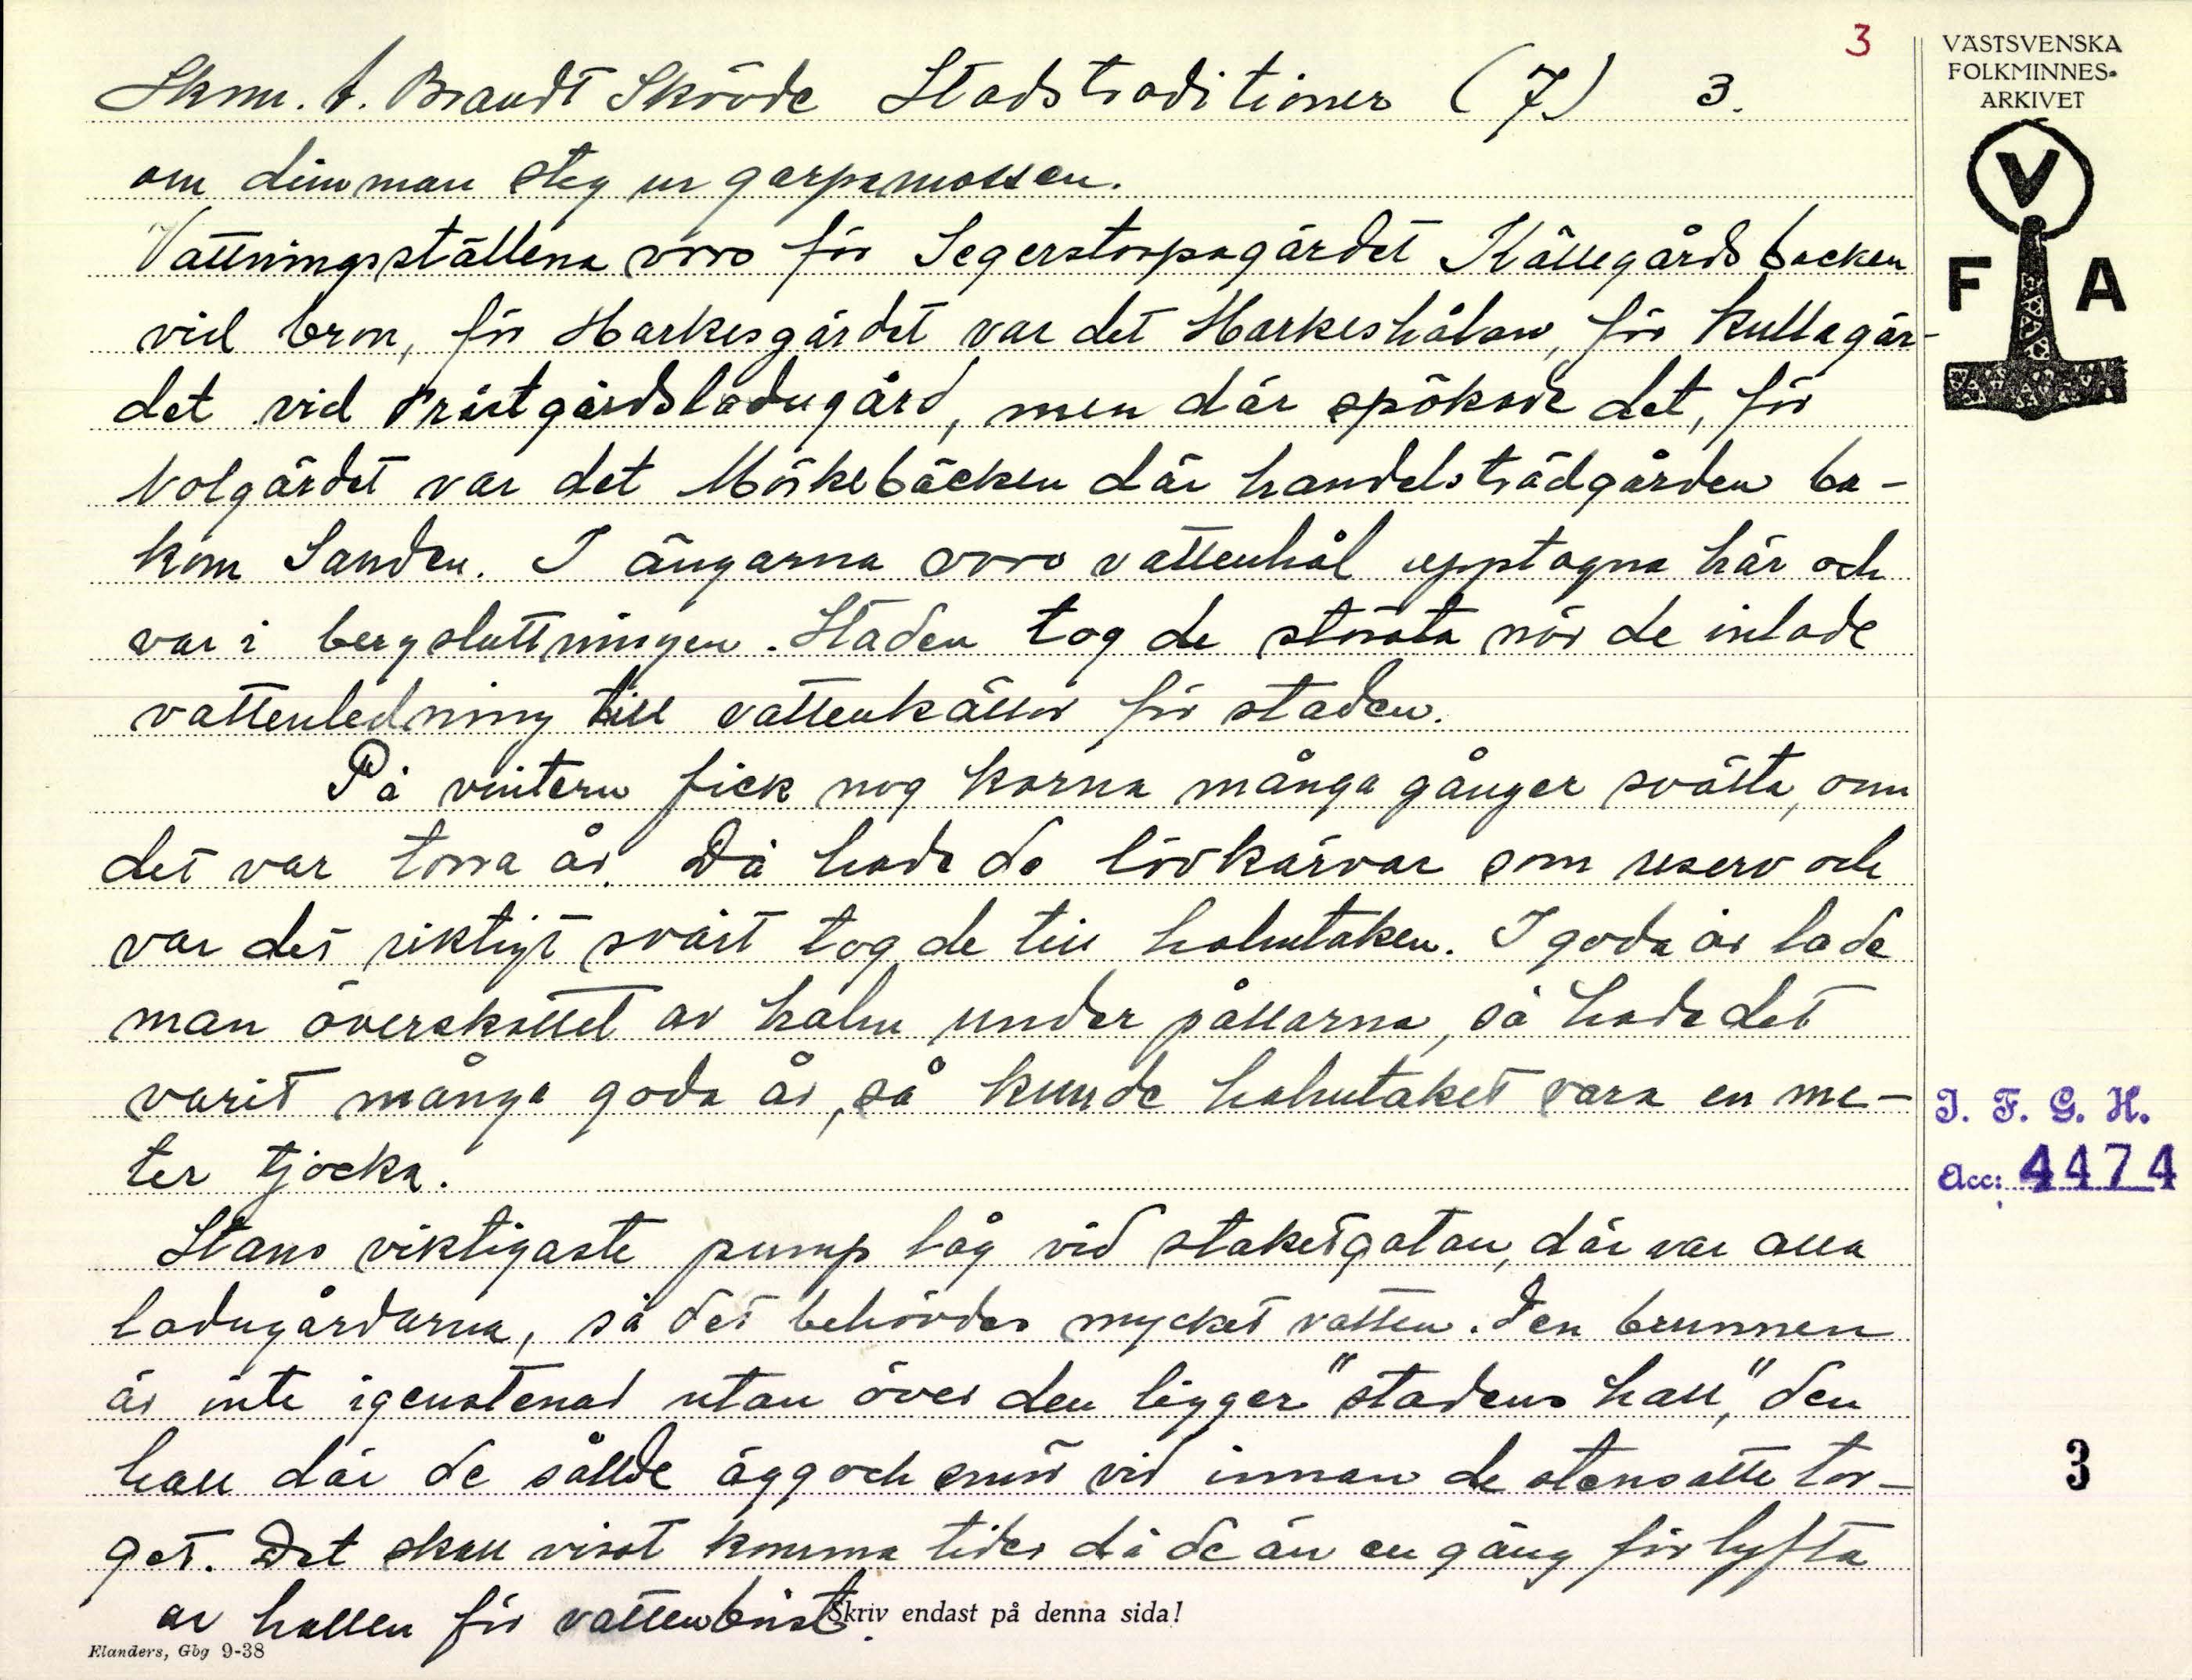 3
VÄSTSVENSKA
FOLKMINNES-
ARKIVET
V
F A
Skrm. A. Brandt Skövde Stadstraditioner (7) 3.
om dimman steg ur garpamossen.
Vattningsställena voro för Segerstorpagärdet Källegårdsbacken
vid bron, för Harkesgärdet var det Harkeshålan, för Kullagär-
det vid Prästgårdsladugård, men där spökade det, för
Volgärdet var det Mörkebäcken där handelsträdgården ba-
kom Sanden. I ängarna voro vattenhål upptagna här och
var i bergsluttningen. Staden tog de största när de inlade
vattenledning till vattenkällor för staden.
På vintern fick nog korna många gånger svälta, om
det var torra år. Då hade de lövkärvar som reserv och
var det riktigt svårt tog de till halmtaken. I goda år lade
man överskottet av halm under pållarna, så hade det
varit många goda år, så kunde halmtaket vara en me-
ter tjocka.
Stans viktigaste pump låg vid staketgatan, där var alla
ladugårdarna, så det behövdes mycket vatten. Den brunnen
är inte igenstenad utan över den ligger "stadens hall", den
hall där de sålde ägg och smör vid innan de stensatte tor-
get. Det skall visst komma tider då de än en gång får lyfta
av hallen för vattenbrist.
Skriv endast på denna sida!
Elanders, Gbg 9-38
I. F. G. H.
Acc: 4474
3